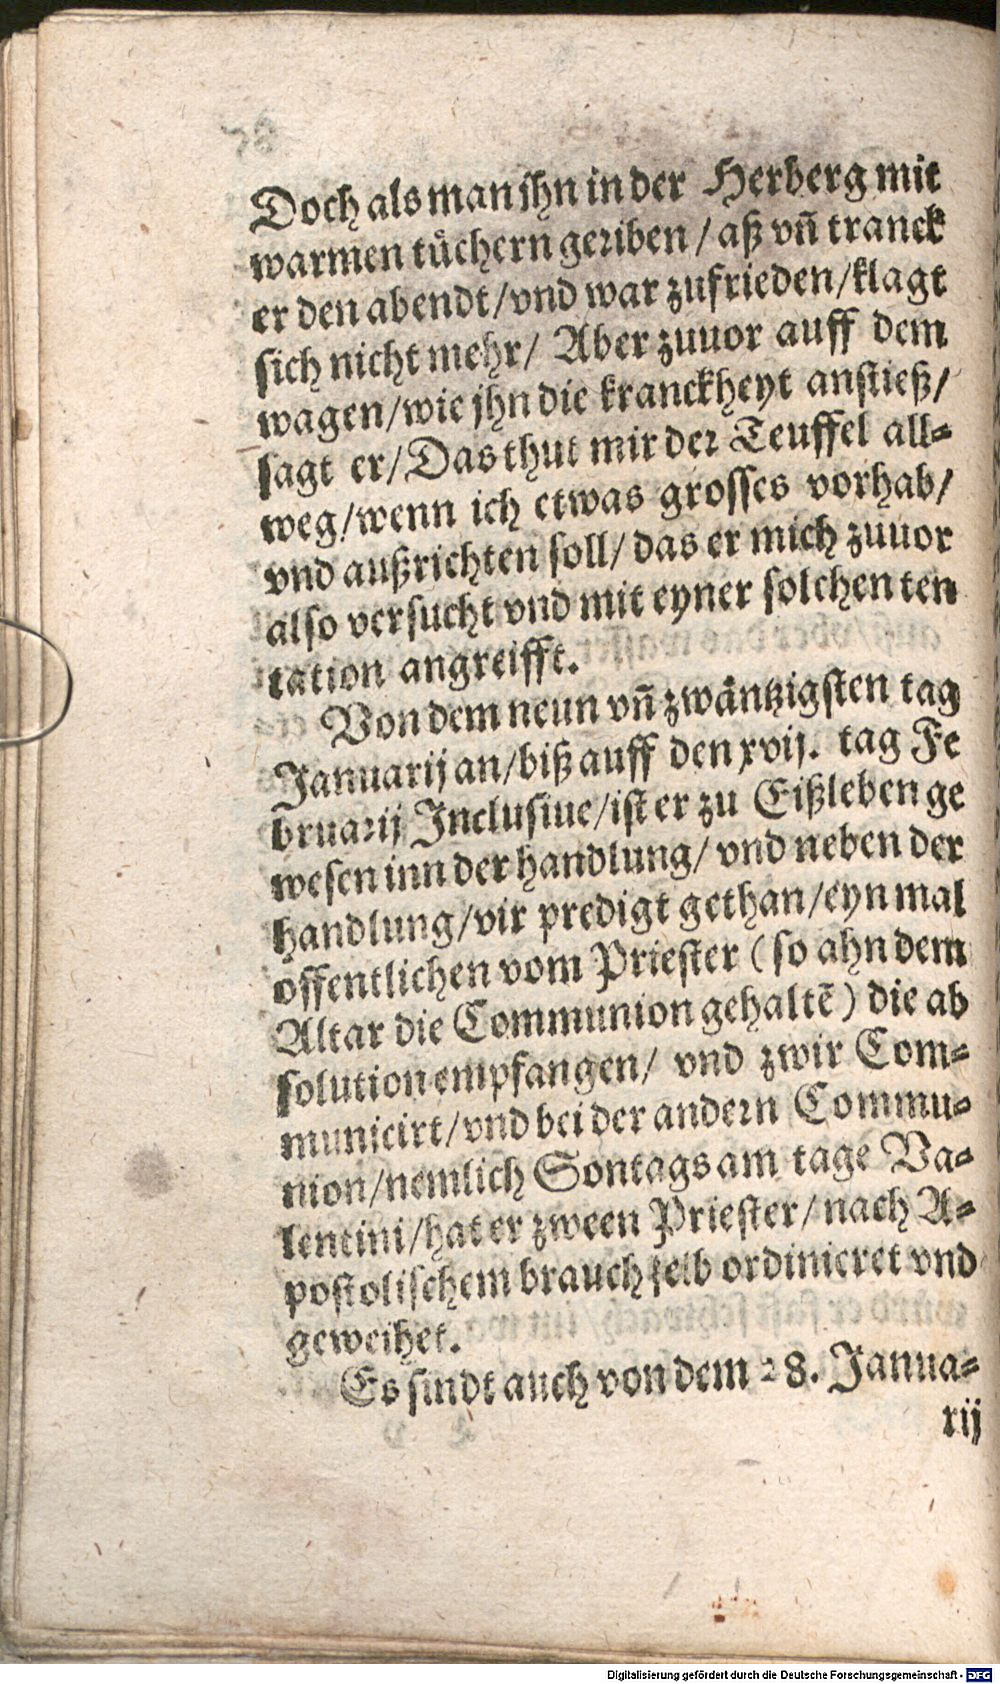 Doch als man jhn in der Herberg mit
warmen tüchern geriben / aß vñ tranck
er den abendt/vnd war zufrieden/klagt
sich nicht mehr/ Aber zuuor auff dem
wagen/wie jhn die kranckheyt anstieß/
sagt er/Das thut mir der Teuffel all=
weg/wenn ich etwas grosses vorhab/
vnd außrichten soll/ das er mich zuuor
also versucht vnd mit eyner solchen ten
tation angreifft.
Von dem neun vñ zwäntzigsten tag
Januarij an/biß auff den xvij. tag Fe
bruarij Inclusiue/ist er zu Eißleben ge
wesen inn der handlung/ vnd neben der
handlung/vir predigt gethan/eyn mal
offentlichen vom Priester (so ahn dem
Altar die Communion gehaltē) die ab
solution empfangen/ vnd zwir Com=
municirt/vnd bei der andern Commu=
nion/nemlich Sontags am tage Va=
lentini/hat er zween Priester/ nach A=
postolischem brauch selb ordinieret vnd
geweihet.
Es sindt auch von dem 28. Janua=
rij
Digitalisierung gefördert durch die Deutsche Forschungsgemeinschaft - DFG